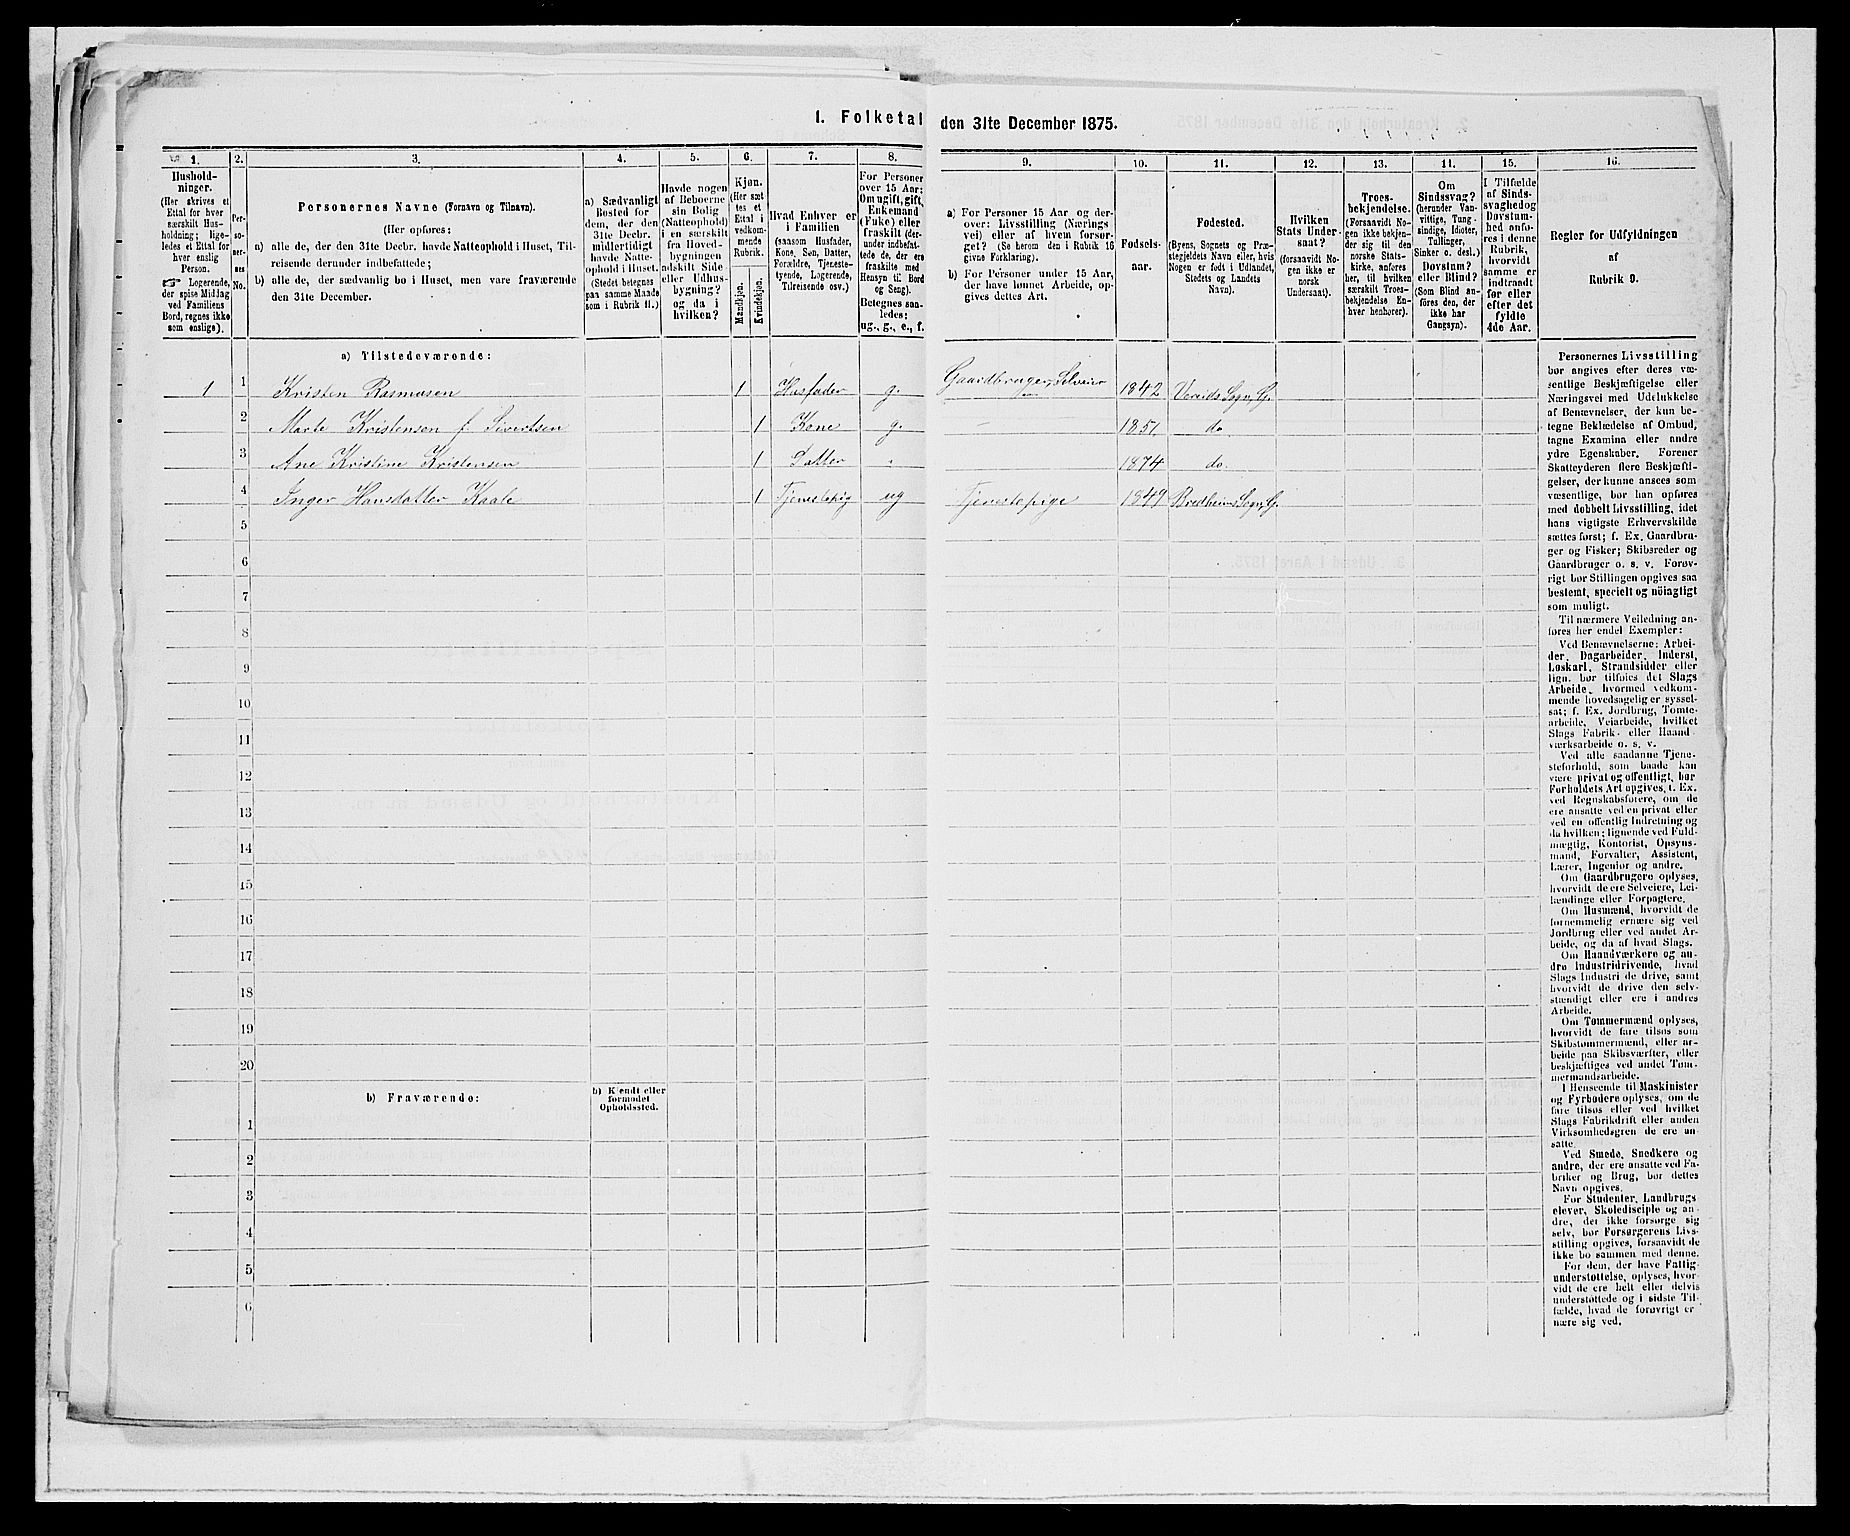 1. Folketal den 31te December 1875.
1. 2. 3. 4. 5. 6. 7. 8. 9. 10. 11. 12. 13. 14. 15. 16.
Hushold-
ninger.
(Her skrives et
Ettal for hver
særskilt Hus-
holdning; lige-
ledes et Ettal for
hver enslig
Person.
☞ Logerende,
der spise Middag
ved Familiens
Bord, regnes ikke
som enslige).
Per-
so-
ner-
nes
No.
Personernes Navne (Fornavn og Tilnavn).
(Her opføres:
a) alle de, der den 31te Decbr. havde Natteophold i Huset, Til-
reisende derunder indbefattede;
b) alle de, der sædvanlig bo i Huset, men vare fraværende
den 31te December.
a) Sædvanligt
Bosted for
dem, der den
31te Decbr.
midlertidigt
havde Natte-
ophold i Huset.
(Stedet betegnes
paa samme Maade
som i Rubrik 11.)
Havde nogen
af Beboerne
sin Bolig
(Natteophold)
i en særskilt
fra Hoved-
bygningen
adskilt Side-
eller Udhus-
bygning?
og da i
hvilken?
Kjøn.
(Her sæt-
tes et
Ettal i
vedkom-
mende
Rubrik.
Mandkjøn.
Kvindekjøn.
Hvad Enhver er
i Familien
(saasom Husfader,
Kone, Søn, Datter,
Forældre, Tjeneste-
tyende, Logerende,
Tilreisende osv.)
For Personer
over 15 Aar:
Om ugift, gift,
Enkemand
(Enke) eller
fraskilt (der-
under indbefat-
tede de, der ere
fraskilte med
Hensyn til Bord
og Seng).
Betegnes saa-
ledes:
ug., g., e., f.
a) For Personer 15 Aar og der-
over: Livsstilling (Nærings-
vei) eller af hvem forsør-
get? (Se herom den i Rubrik 16
givne Forklaring).
b) For Personer under 15 Aar,
der have lønnet Arbeide, op-
gives dettes Art.
Fødsels-
aar.
Fødested.
(Byens, Sognets og Præ-
stegjeldets Navn eller, hvis
Nogen er født i Udlandet,
Stedets og Landets
Navn).
Hvilken
Stats Under-
saat?
(forsaavidt No-
gen ikke er
norsk
Undersaat).
Troes-
bekjendelse.
(Forsaavidt No-
gen ikke bekjen-
der sig til den
norske Stats-
kirke, anføres
her, til hvilken
særskilt Troes-
bekjendelse En-
hver henhører).
Om
Sindssvag?
(herunder Van-
vittige, Tung-
sindige, Idioter,
Tullinger,
Sinker o. desl.)
Døvstum?
eller Blind?
(Som Blind an-
føres den, der
ikke har
Gangsyn).
I Tilfælde
af Sinds-
svaghed og
Døvstum-
hed anfø-
res i denne
Rubrik,
hvorvidt
samme er
indtraadt
før eller
efter det
fyldte
4de Aar.
Regler for Udfyldningen
af
Rubrik 9.
a) Tilstedeværende:
1 1 Kristen Rasmusen 1 Husfader g. Gaardbruger, Selveier 1842 Vereids Sogn, G.
2 Marte Kristensen f. Sivertsen 1 Kone g. — 1851. do
3 Ane Kristine Kristensen 1 Datter 1874 do.
4 Inger Hansdatter Kaale 1 Tjenestepig ug Tjenestepige 1849 Bredheims Sogn, G.
5
6
7
8
9
10
11
12
13
14
15
16
17
18
19
20
b) Fraværende:
b) Kjendt eller
formodet
Opholdssted.
1
2
3
4
5
6
Personernes Livsstilling
bør angives efter deres væ-
sentlige Beskjæftigelse eller
Næringsvei med Udelukkelse
af Benævnelser, der kun be-
tegne Beklædelse af Ombud,
tagne Examina eller andre
ydre Egenskaber. Forener
Skatteyderen flere Beskjæfti-
gelser, der kunne ansees som
væsentlige, bør han opføres
med dobbelt Livsstilling, idet
hans vigtigste Erhvervskilde
sættes først; f. Ex. Gaardbru-
ger og Fisker; Skibsreder og
Gaardbruger o. s. v. Forøv-
rigt bør Stillingen opgives saa
bestemt, specielt og nøiagtigt
som muligt.
Til nærmere Veiledning an-
føres her endel Exempler:
Ved Benævnelserne: Arbei-
der, Dagarbeider, Inderst,
Løskarl, Strandsidder eller
lign. bør tilføies det Slags
Arbeide, hvormed vedkom-
mende hovedsagelig er syssel-
sat; f. Ex. Jordbrug, Tomte-
arbeide, Veiarbeide, hvilket
Slags Fabrik- eller Haand-
værksarbeide o. s. v.
Ved alle saadanne Tjene-
steforhold, som baade kan
være privat og offentligt, bør
Forholdets Art opgives, f. Ex.
ved Regnskabsførere, om de
ere ansatte ved en privat eller
ved en offentlig Indretning og
da hvilken; lignende ved Fuld-
mægtig, Kontorist, Opsyns-
mand, Forvalter, Assistent,
Lærer, Ingeniør og andre.
Om Gaardbrugere oplyses,
hvorvidt de ere Selveiere, Lei-
lændinge eller Forpagtere.
Om Husmænd, hvorvidt de
fornemmelig ernære sig ved
Jordbrug eller ved andet Ar-
beide, og da af hvad Slags.
Om Haandværkere og an-
dre Industridrivende, hvad
Slags Industri de drive, samt
hvorvidt de drive den selv-
stændigt eller ere i andres
Arbeide.
Om Tømmermænd oplyses,
hvorvidt de fare tilsøs som
Skibstømmermænd, eller ar-
beide paa Skibsværfter, eller
beskjæftiges ved andet Tøm-
mermandsarbeide.
I Henseende til Maskinister
og Fyrbødere oplyses, om de
fare tilsøs eller ved hvilket
Slags Fabrikdrift eller anden
Virksomhedsgren de ere an-
satte.
Ved Smede, Snedkere og
andre, der ere ansatte ved Fa-
briker og Brug, bør dettes
Navn opgives.
For Studenter, Landbrugs-
elever, Skoledisciple og an-
dre, der ikke forsørge sig
selv, bør Forsørgerens Livs-
stilling opgives, forsaavidt de
ikke bo sammen med denne.
For dem, der have Fattig-
understøttelse, oplyses, hvor-
vidt de ere helt eller delvis
understøttede og i sidste Til-
fælde, hvad de forøvrigt er-
nære sig ved.